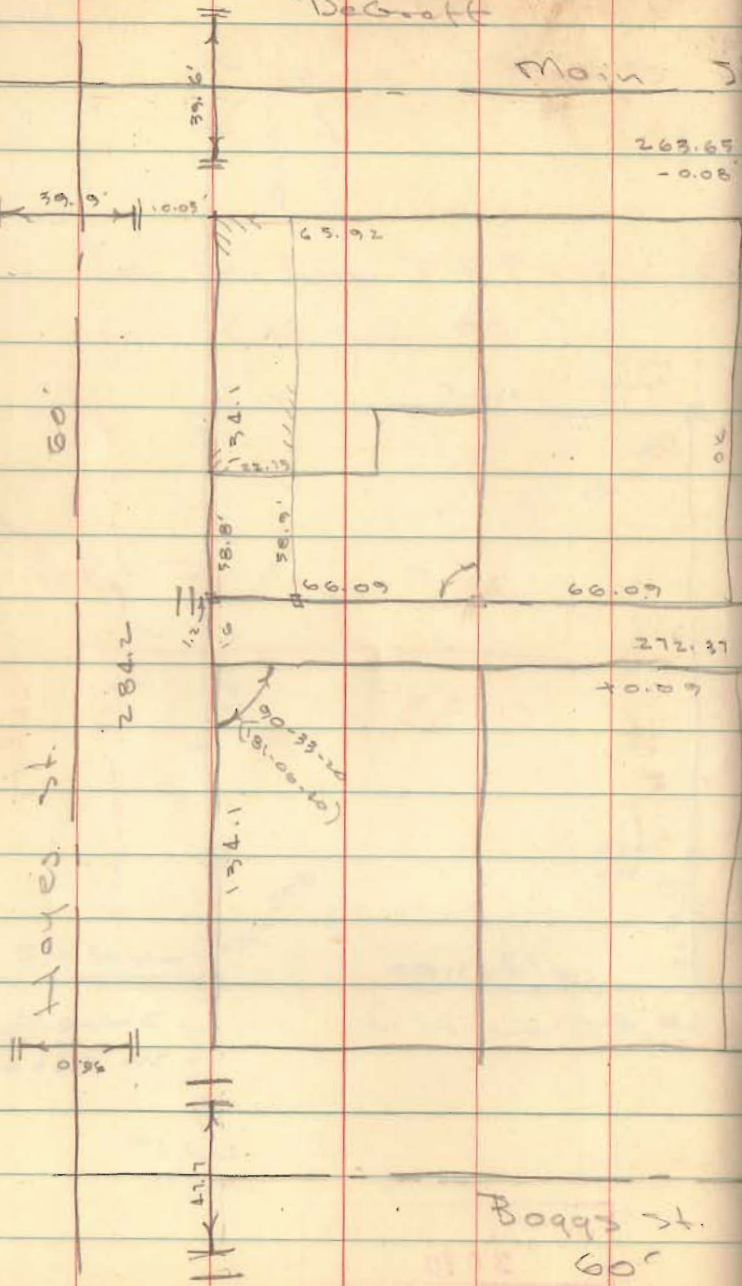 DeGraff
Main S
39.6'
263.65
- 0.08'
39.9'
0.05'
65.92
60'
134.1
22.75
58.8'
58.9'
OK
66.09
66.09
1.2
16
284.2
272.37
+0.09
90-33-20
(181-06-20)
134.1
Hayes St.
41.7
Boggs St.
60'